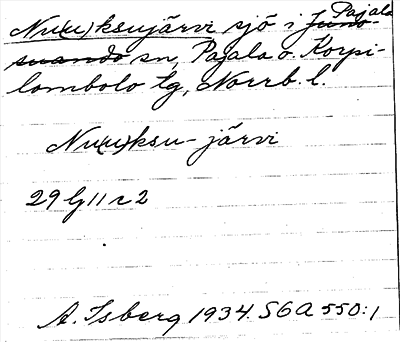 Nu(u)ksujärvi sjö i Juno- Pajala
suando sn, Pajala o. Korpi-
lombolo tg, Norrb. l.
Nu(u)ksu-järvi
29 g 11 r 2
A. Isberg 1934. S6a 550:1